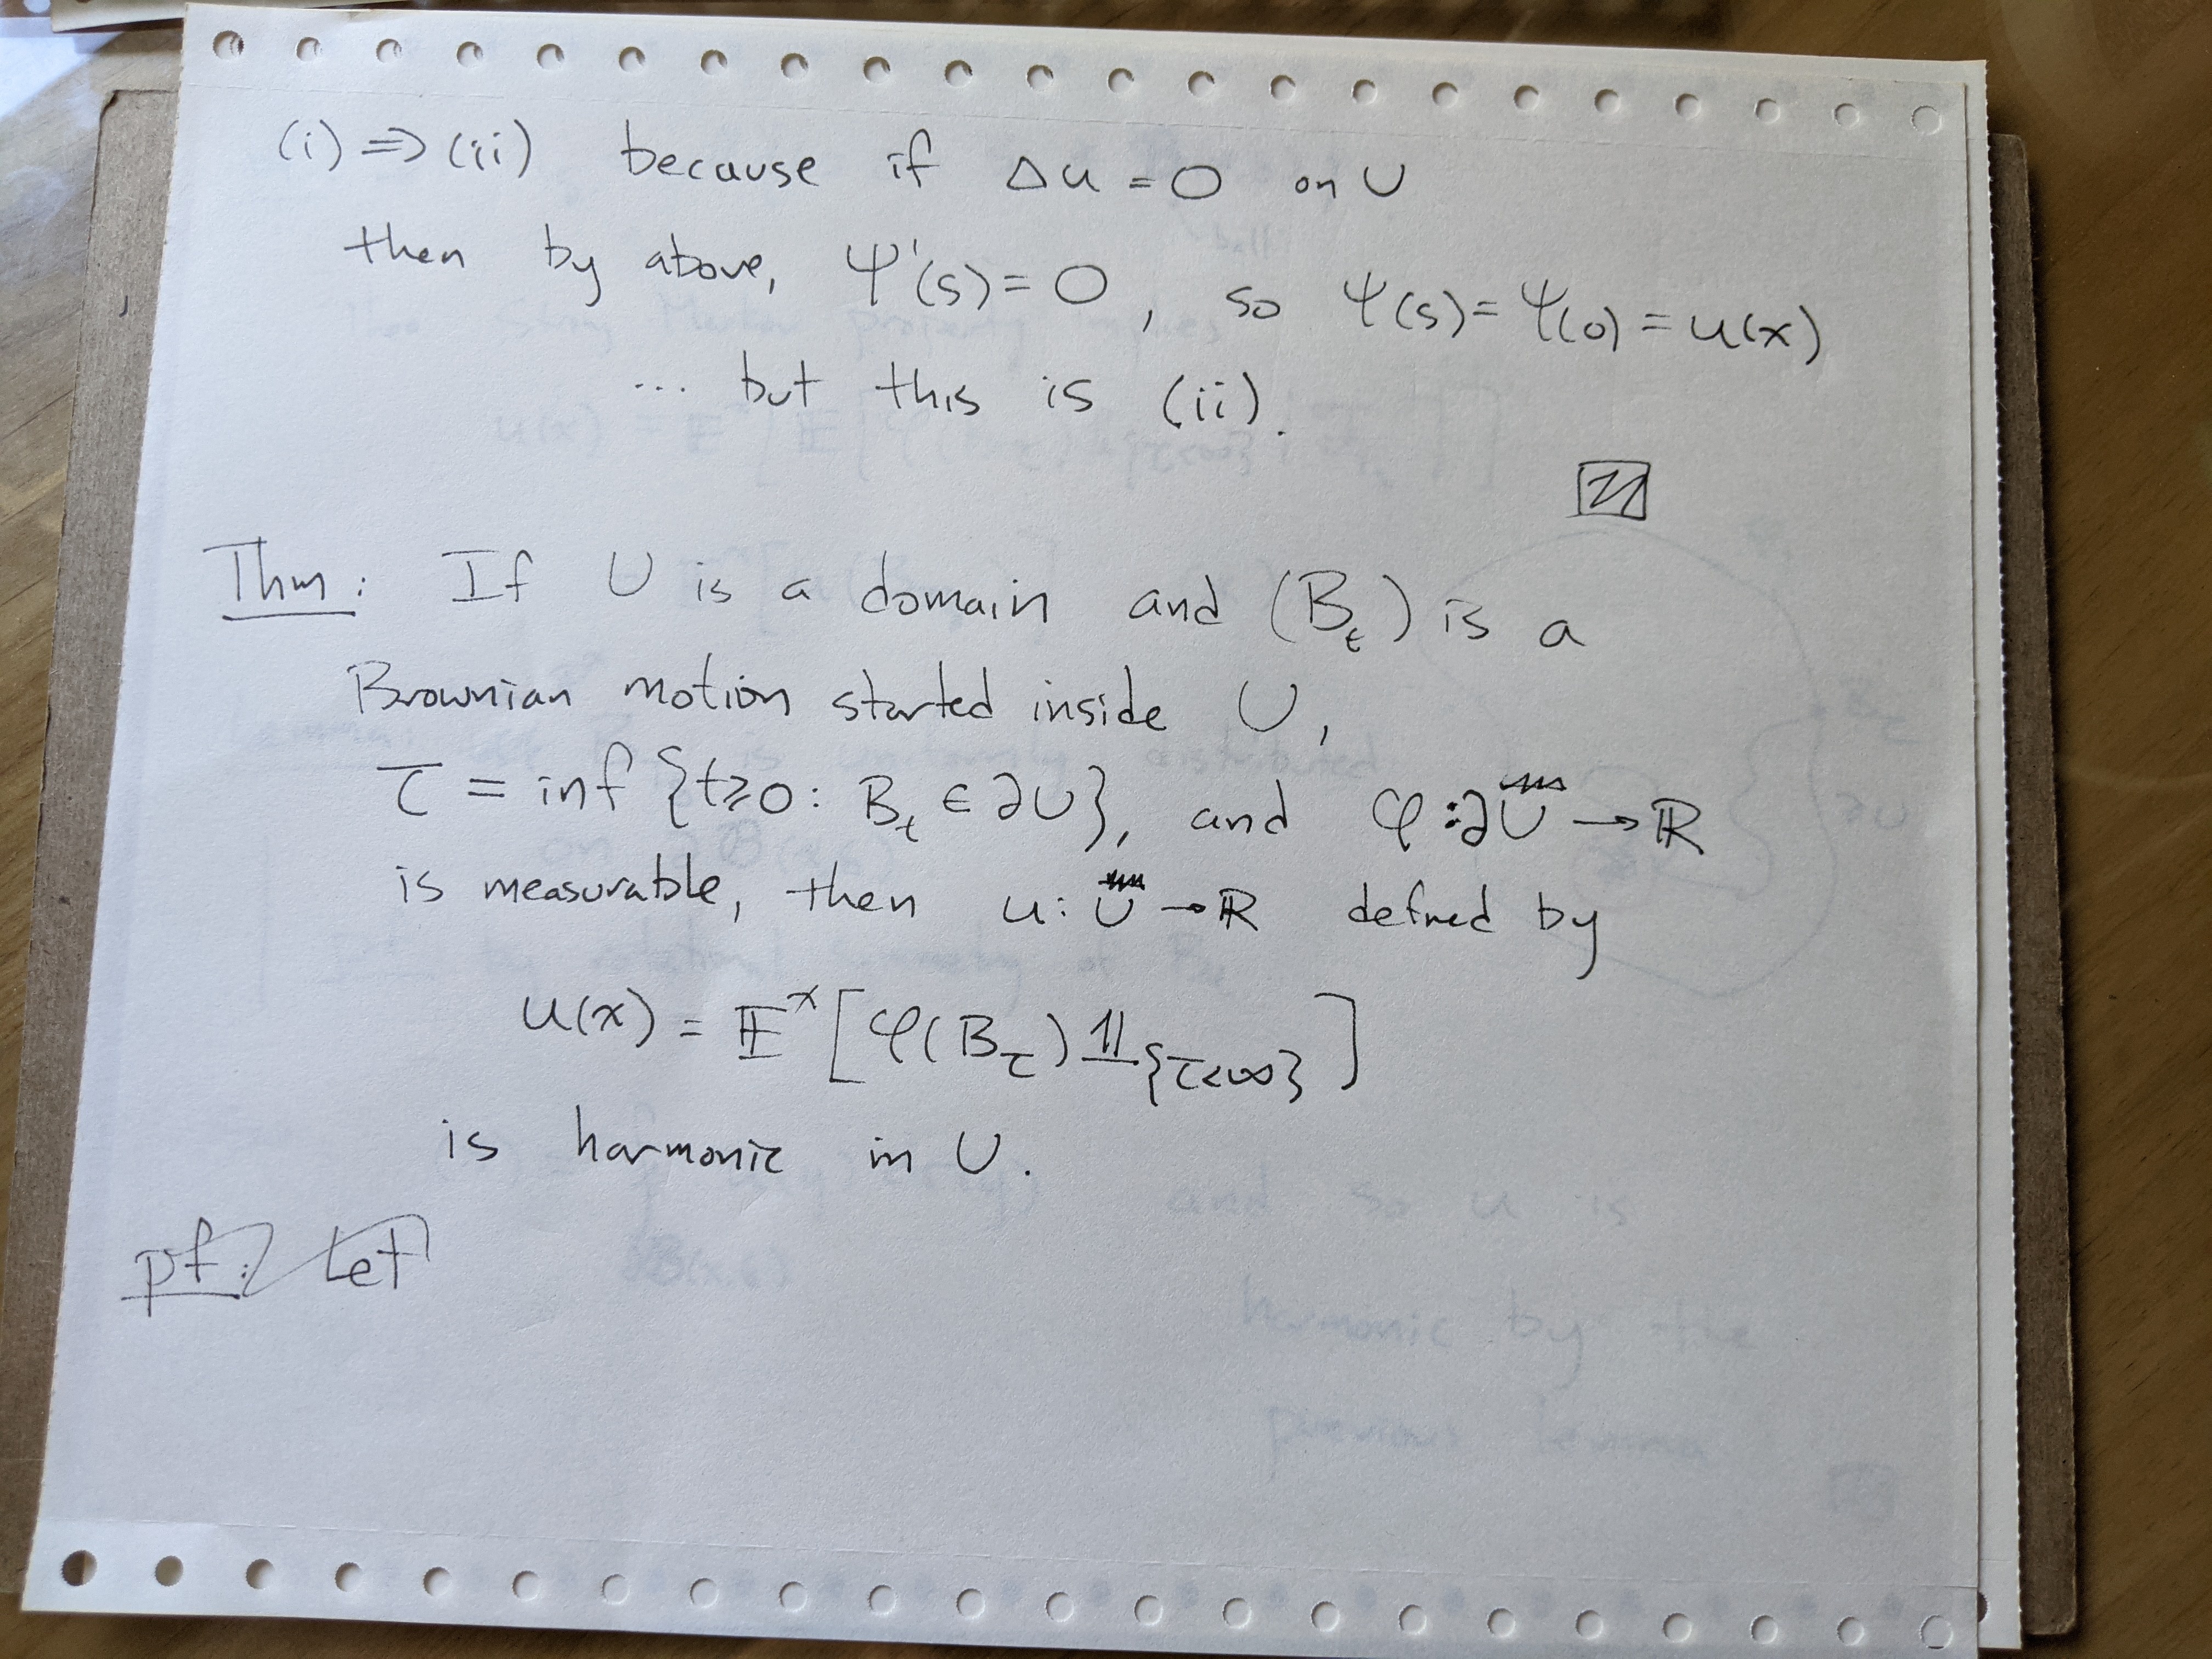 (i) ⇒ (ii) because if Δu = 0 on U
then by above, Ψ'(s) = 0, so Ψ(s) = Ψ(0) = u(x)
... but this is (ii).
Thm: If U is a domain and (B_t) is a
Brownian motion started inside U,
τ = inf {t ≥ 0 : B_t ∈ ∂U}, and φ : ∂U → ℝ
is measurable, then u : U → ℝ defined by
u(x) = 𝔼^x [φ(B_τ) 𝟙_{τ<∞}]
is harmonic in U.
pf: Let